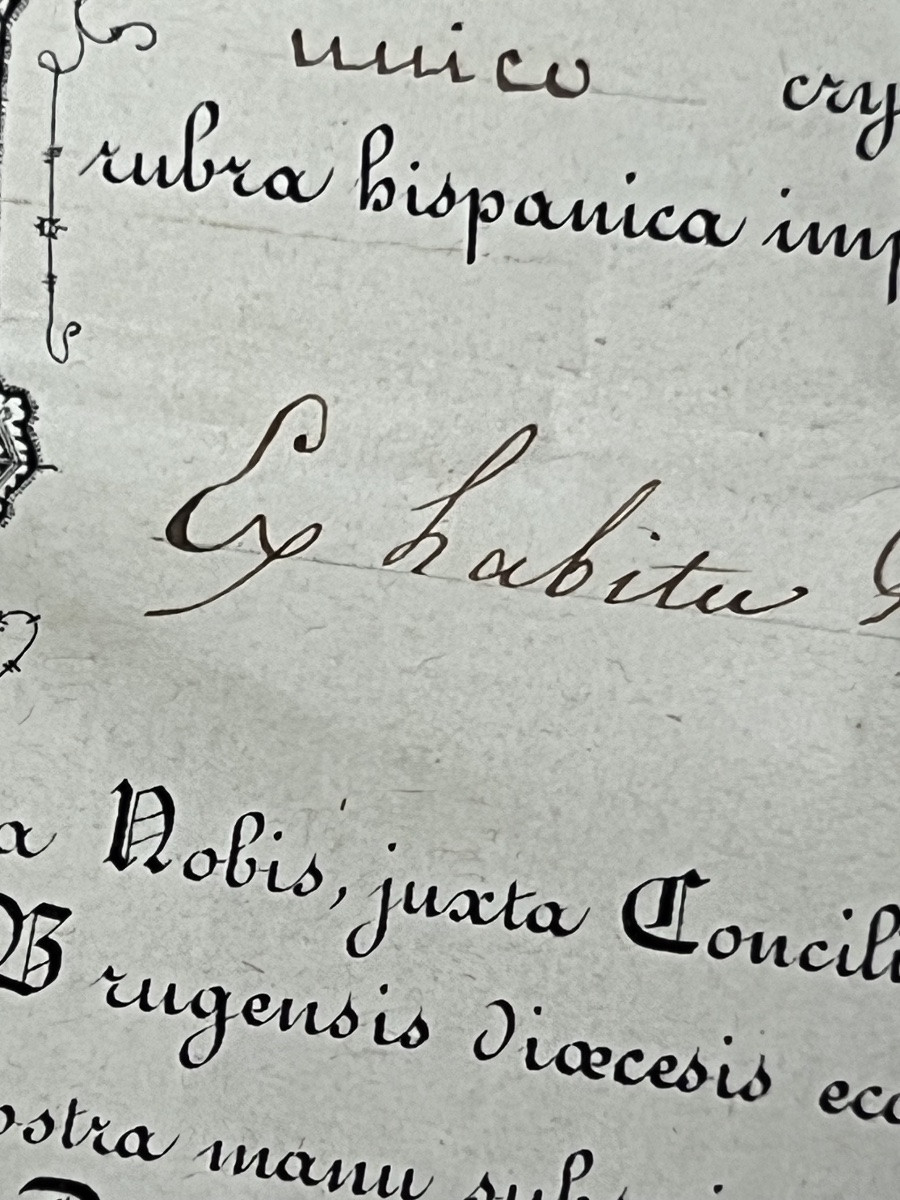 unico cry
rubra hispanica imp
Ex habitu
a Nobis, juxta Concili
Brugensis diœcesis ecc
ostra manu sub